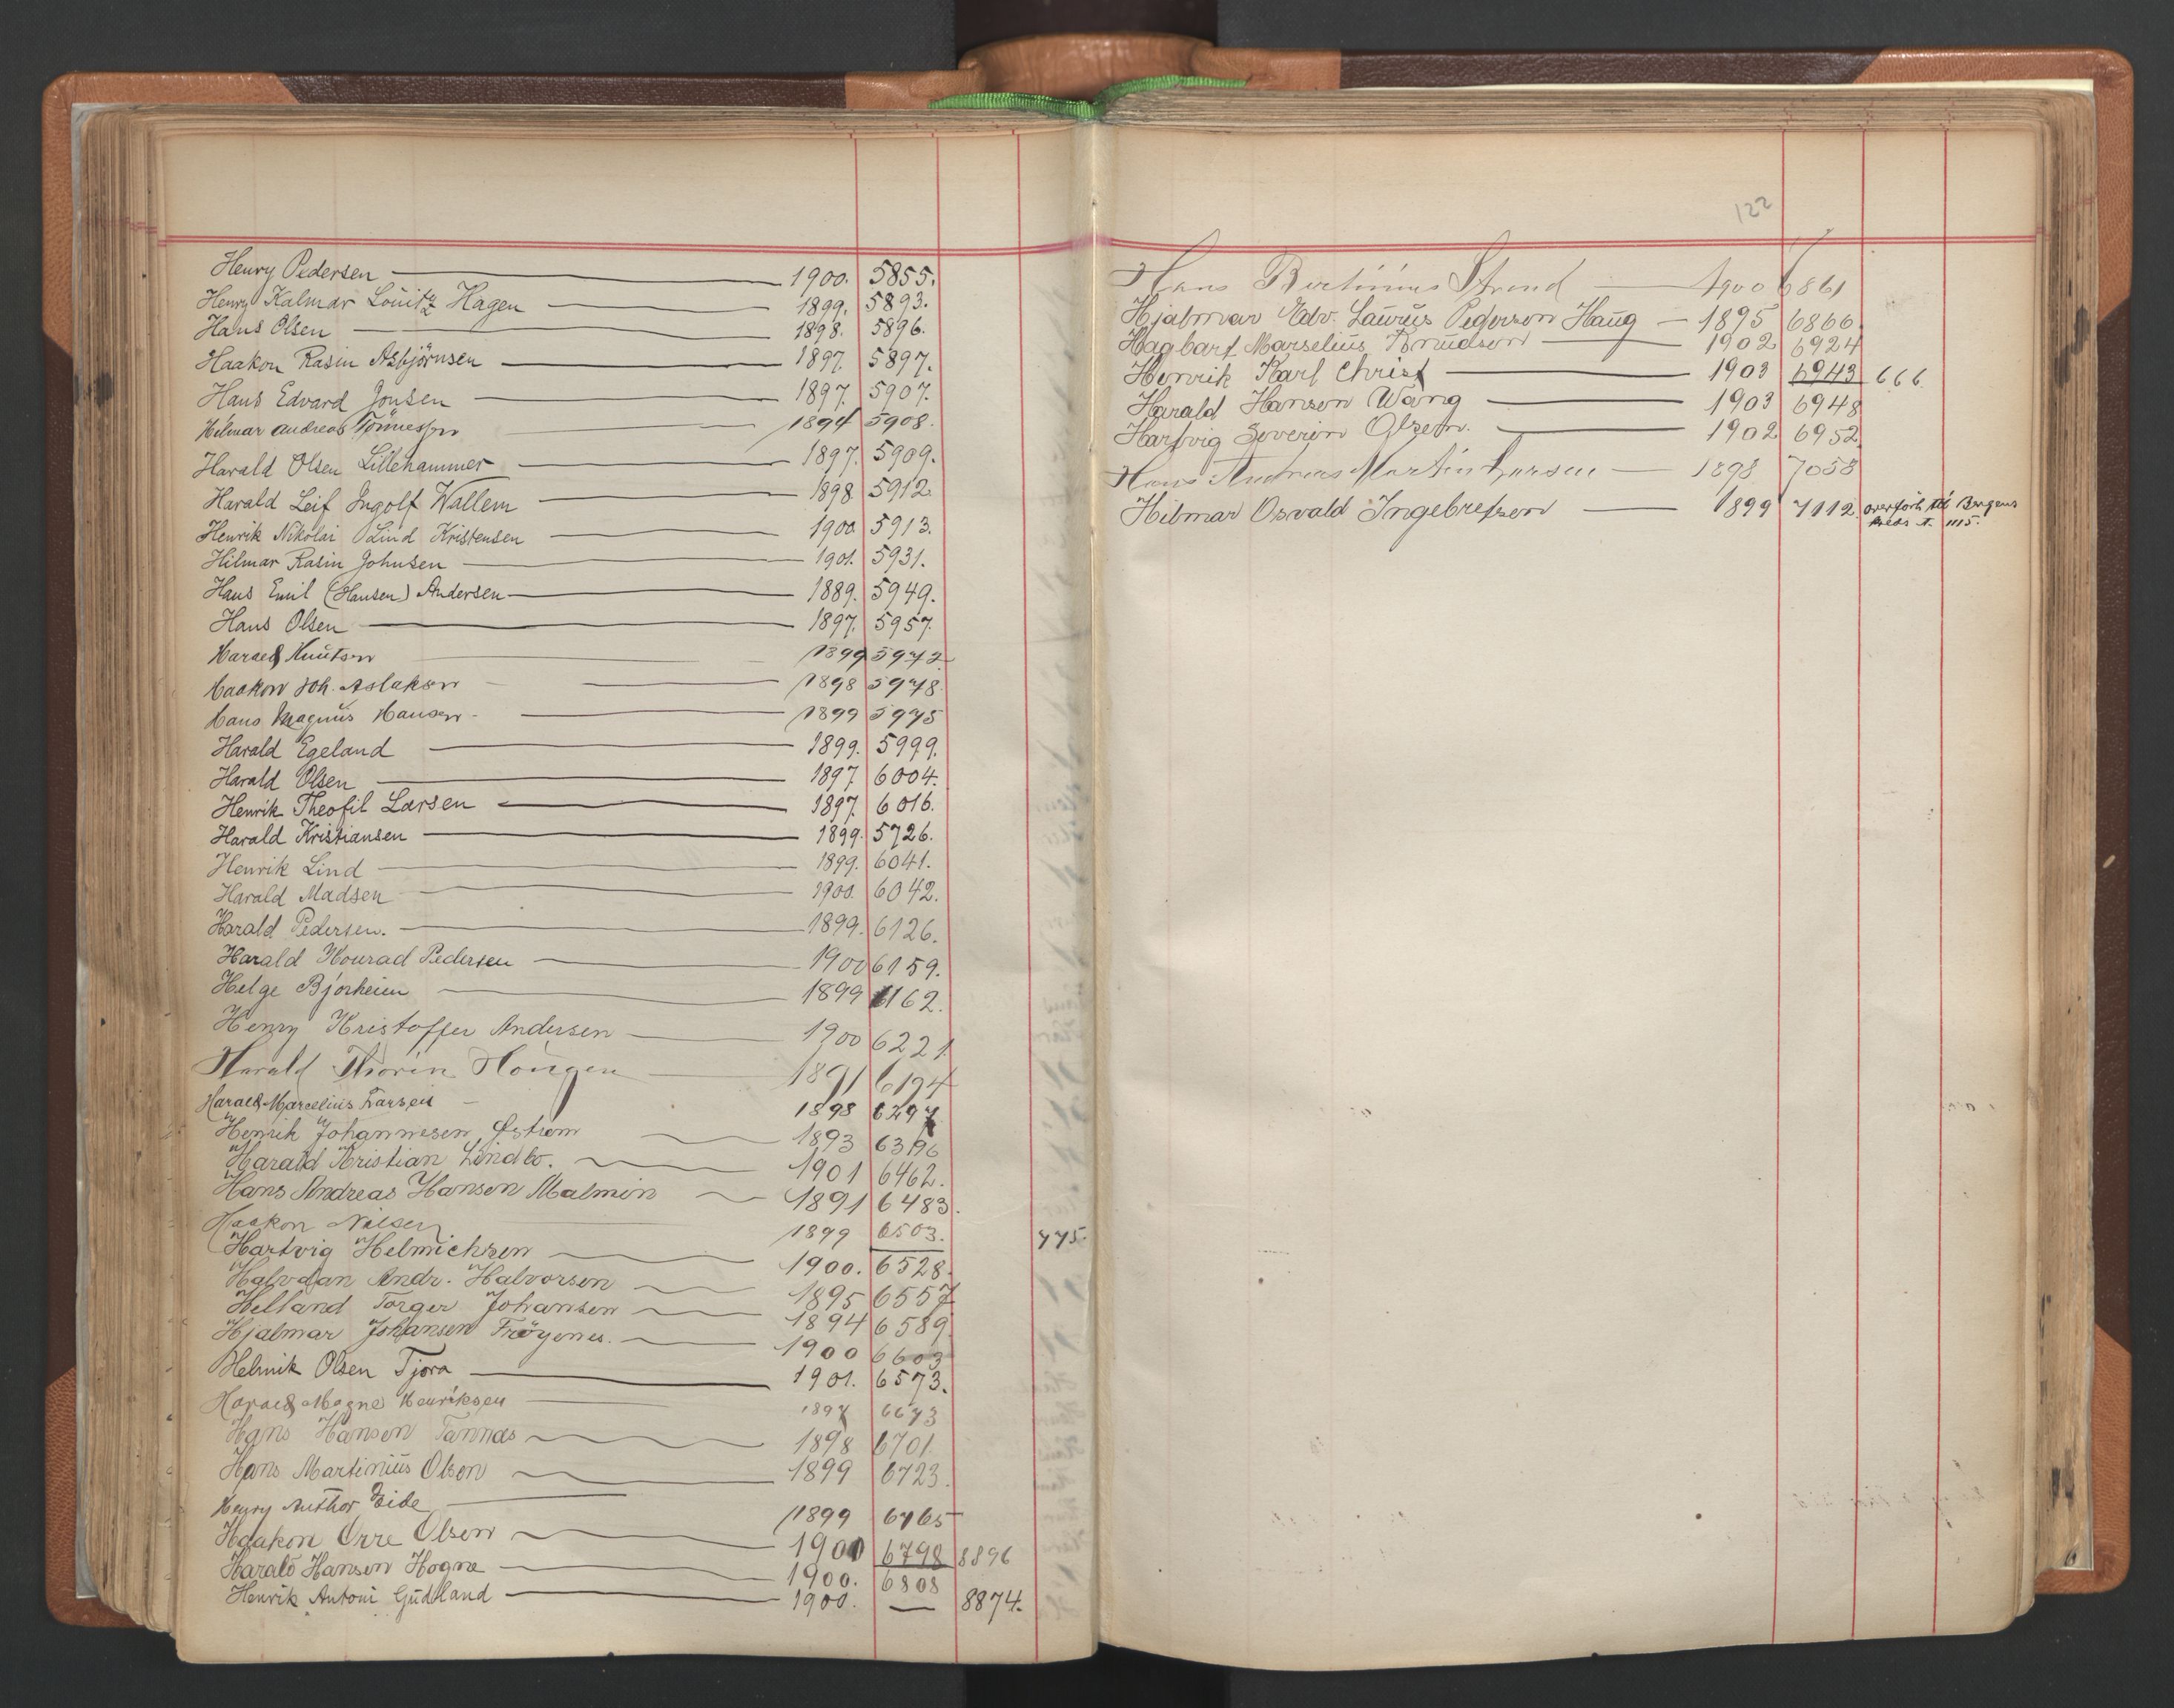 Henry Pedersen 1900. 5855.
Henry Kalmar Louitz Hagen 1899. 5893.
Hans Olsen 1898. 5896.
Haakon Rasin Asbjörnsen 1897. 5897.
Hans Edvard Jonsen 1897. 5907.
Hilmar Andreas Tönnessen 1894 5908.
Harald Olsen Lillehammer 1897. 5909.
Harald Leif Ingolf Wallem 1898 5912.
Henrik Nikolai Lind Kristensen 1900. 5913.
Hilmar Rasin Johnsen 1901. 5931.
Hans Emil (Hansen) Andersen 1889. 5949.
Hans Olsen 1897. 5957.
Harald Knutsen 1899 5972.
Haakon Joh. Aslaksen 1898 5978.
Hans Magnus Hansen 1899 5975
Harald Egeland 1899. 5999.
Harald Olsen 1897 6004.
Henrik Theofil Larsen 1897. 6016.
Harald Kristiansen 1899. 5726.
Henrik Lind 1899. 6041.
Harald Madsen 1900. 6042.
Harald Pedersen. 1899. 6126.
Harald Konrad Pedersen 1900 6159.
Helge Bjorheim 1899 6162.
Henry Kristoffer Andersen 1900 6221.
Harald Thorin Hougen 1891 6194
Harald Marcelius Larsen 1898 6297
Henrik Johannesen Østrem 1893 6396
Harald Kristian Lindbo. 1901 6462.
Hans Andreas Hansen Malmin 1891 6483.
Haakon Nilsen 1899 6503. 775.
Hartvig Helmichsen 1900. 6528.
Halvdan Andr. Halvorsen 1895 6557
Helland Torger Johansen 1894 6589.
Hjalmar Johansen Frøyenes. 1900 6603
Helmik Olsen Tjora 1901. 6573.
Harald Magne Henriksen 1897 6673
Hans Hansen Tannas 1898 6701.
Hans Martinius Olsen 1899 6723.
Henry Author Eide 1899 6765
Haakon Orre Olsen 1900 6798 8896
Harald Hansen Hogne 1900. 6808
Henrik Antoni Gudland 1900. — 8874.
122
Hans Bertinius Strand 1900 6861
Hjalmar Edv. Laurus Pederson Haug 1895 6866.
Hagbart Marselius Knudsen 1902 6924
Henrik Karl Christ 1903 6943 666.
Harald Hansen Wang 1903 6948
Hartvig Severin Olsen. 1902 6952
Hans Andreas Martin Larsen 1898 7058
Hilmar Osvald Ingebretsen 1899 7112. overført til Bergens
Kreds N. 1115.